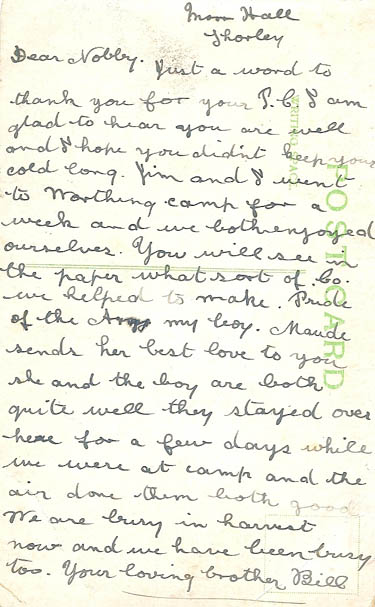 Moor Hall
Thorley
Dear Nobby. Just a word to
thank you for your P.C. I am
glad to hear you are well
and I hope you didn't keep your
cold long. Jim and I went
to Worthing camp for a
week and we both enjoyed
ourselves. You will see in
the paper what sort of Co.
we helped to make. Pride
of the Army my boy. Maude
sends her best love to you
she and the boy are both
quite well they stayed over
here for a few days while
we were at camp and the
air done them both good
We are busy in harvest
now and we have been busy
too. Your loving brother Bill
POST CARD
WRITING SPACE